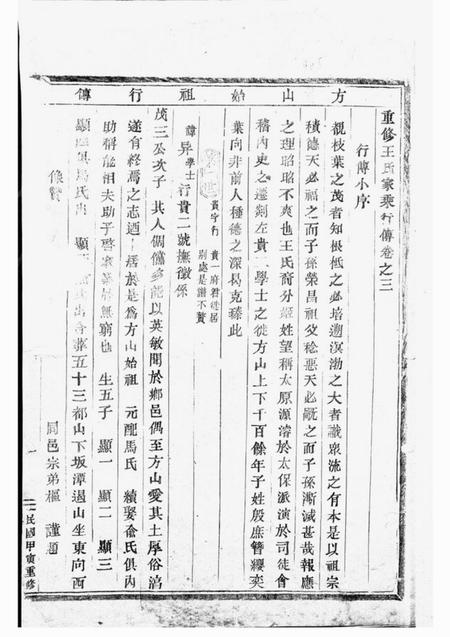 方山始祖行傳
重修王氏家乘行傳卷之三
行傳小序
覩枝葉之茂者知根柢之必培溯溟渤之大者識衆流之有本是以祖宗
積德天必福之而子孫榮昌祖父稔惡天必厭之而子孫漸滅甚哉報應
之理昭昭不爽也王氏裔分姬姓望稱太原派源濬於太保派演於司徒會
稽內史之遷剡左貴二學士之徙方山上下千百餘年子姓殷庶簪纓奕
葉向非前人種德之深曷克臻此
貴字行
貴一府君徙居
別處是譜不贅
諱昇學士行貴二號撫徽係
茂三公次子其人倜儻多能以英敏聞於鄉邑偶至方山愛其土厚俗淳
遂有終焉之志迺居於是爲方山始祖 元配馬氏 續娶俞氏俱內
助稱能相夫助子 無窮也 生五子 顯一 顯二 顯三
顯 馬氏出 顯 出合葬五十三都山下坂潭過山坐東向西
像贊
同邑宗弟樞 謹題
民國甲寅重修